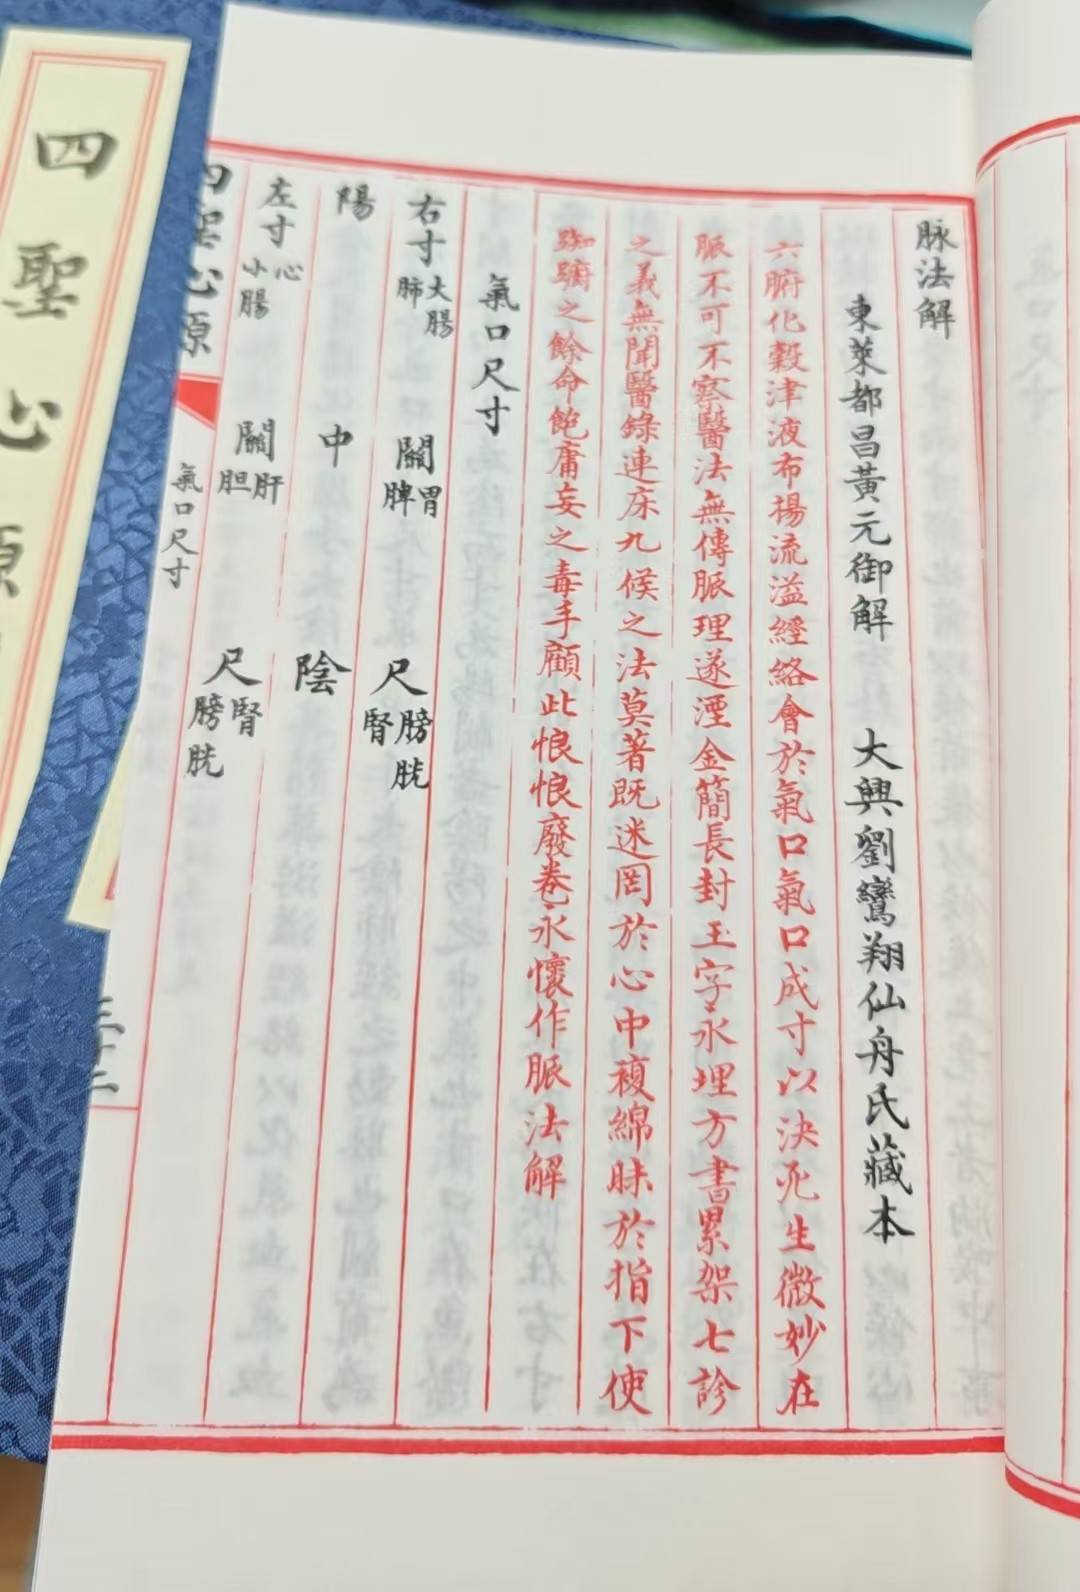 脉法解
東萊都昌黃元御解 大興劉鸞翔仙舟氏藏本
六腑化穀津液布揚流溢經絡會於氣口氣口成寸以決死生微妙在
脈不可不察醫法無傳脈理遂湮金簡長封玉字永埋方書累架七診
之義無聞醫錄連床九候之法莫著既迷罔於心中複綿昧於指下使
踟躕之餘命飽庸妄之毒手顧此悢悢廢卷永懷作脈法解
氣口尺寸
右寸 大腸 肺 關 胃 脾 尺 膀胱 腎
陽 中 陰
左寸 心 小腸 關 肝 胆 尺 腎 膀胱
四聖心源 氣口尺寸
四聖心源